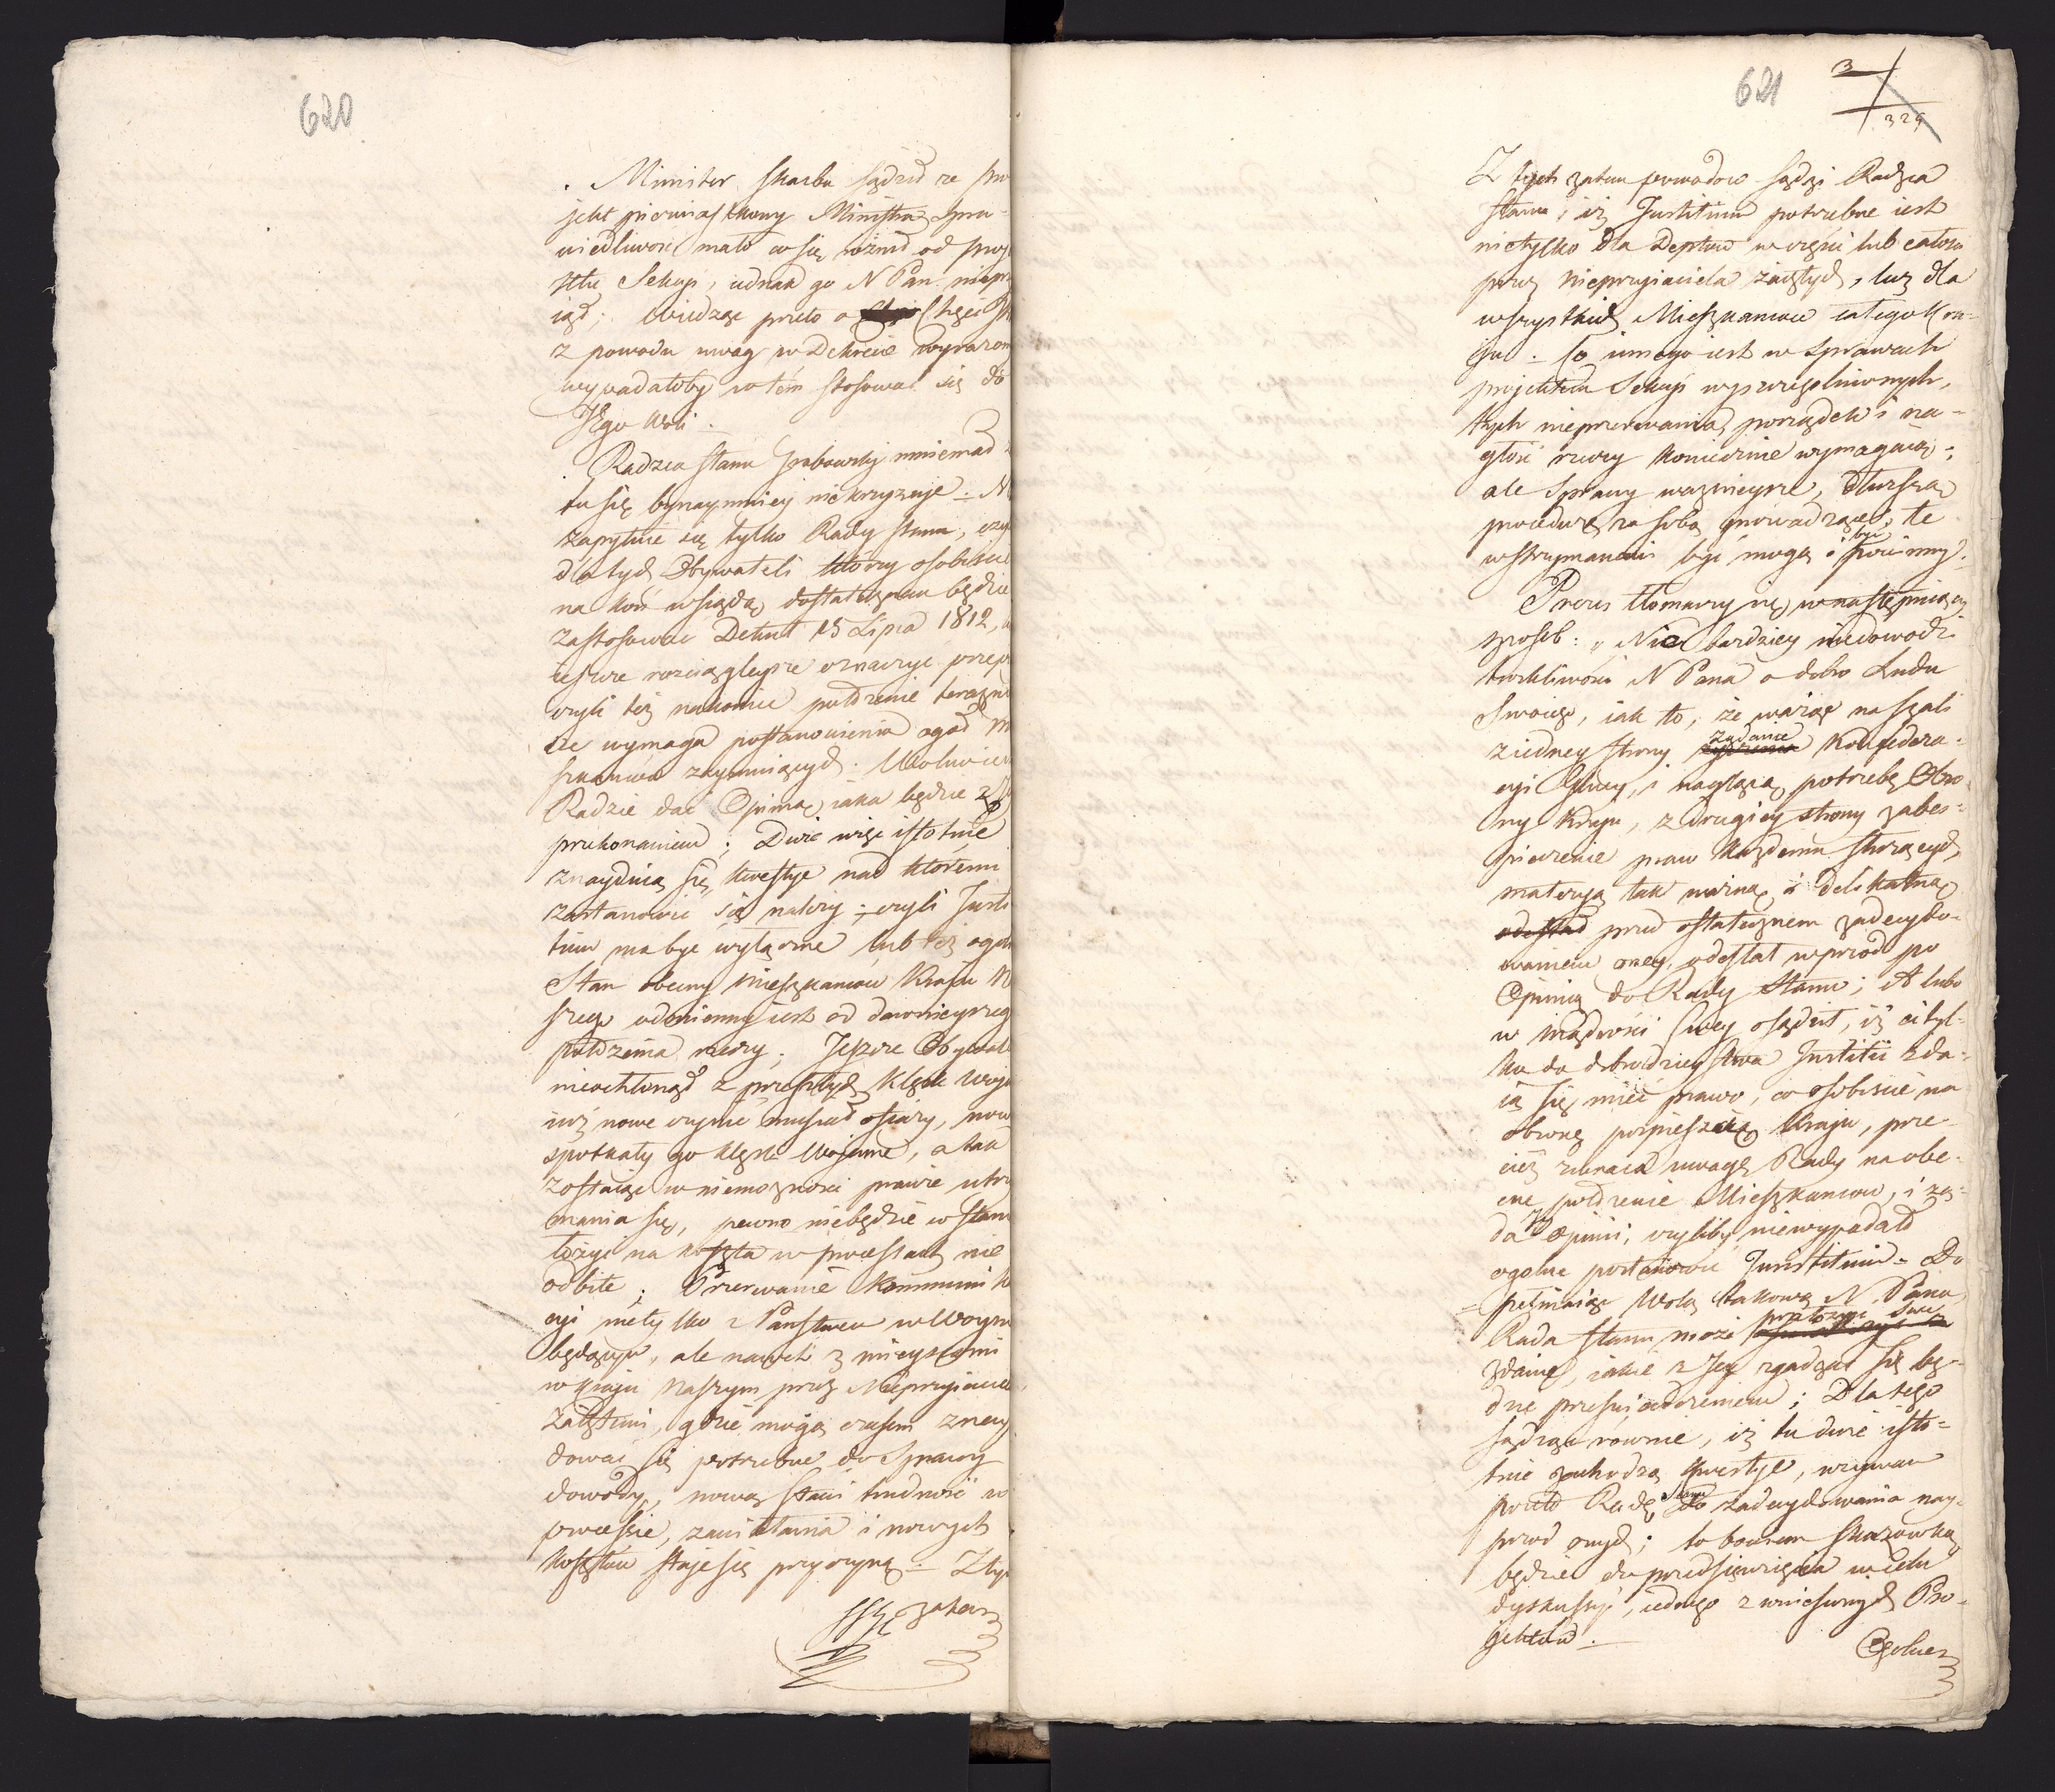 620
. Minister Skarbu sądził że pro
jekt pierwiastkowy Ministra Spra-
wiedliwości mało co się różnił od proj
ektu Sekcyi, iednak go N Pan niepr
iął; widząc przeto
z powodu uwag w Dekrecie wyrażon
wypadałoby w tém stosować się do
JEgo Woli.
Radzca stanu Grabowski mniemał
tu się bynaymniey nie krzyżuje. N
zapytuie się tylko Rady Stanu, czy
dla tych Obywateli którzy osobiście
na koń wsiądą, dostatecznem będzie
zastosować Dekret 15 Lipca 1812,
ieszcze rozciągleysze oznaczyć przep
czyli też nakoniec położenie teraźni
sze wymaga postanowienia ogół M
szkańców zaymuiących. Wolno ies
Radzie dać Opinią, iaka będzie z
przekonaniem; Dwie więc istotnie
znayduią się kwestye nad któremi
zastanowić się należy: czyli Justi
tium ma być wyłączne lub też ogól
Stan obecny Mieszkańców Kraju N
szego odmienny iest od dawnieyszego
położenia rzeczy. Jeszcze Obywatel
nieochłonął z przeszłych klęsk Woje
iuż nowe czynić musiał ofiary, nowe
spotkały go klęski Wojenne, a tak
zostaiąc w niemożności prawie utrzy
mania się, pewno niebędzie w stanie
łożyć na koszta w processach nie
odbite; Przerwanie Kommunik
cyi nietylko z Państwem w Woyn
będącym, ale nawet z mieyscami
w kraju Naszym przez Nieprzyiaciela
zaiętemi, gdzie mogą czasem znay
dować się potrzebne do Sprawy
dowody, nową stawi trudność w
processie, zawikłania i nowych
kosztów staje się przyczyną. Z tych
zatem
621
3
329
Z tych zatem powodów sądzi Radzca
Stanu, iż Justitium potrzebne iest
nietylko dla Deptów w części lub całości
przez Nieprzyiaciela zaiętych, lecz dla
wszystkich Mieszkańców całego Kra-
iu. Co innego iest w sprawach
projektem Sekcyi wyszczególnionych,
tych nieprzerwania porządek i na-
głość rzeczy koniecznie wymagaią;
ale Sprawy ważnieysze, dłuższą
procedurę za sobą prowadzące, te
wstrzymanemi być mogą i być powinny.
Prezes tłomaczy się w następuiący
sposób: „Nic bardziey niedowodzi
troskliwości N Pana o dobro Ludu
Swoiego, iak to, że ważąc na szali
z iedney strony żądanie Konfedera-
cyi Głney, i naglącą potrzebę Obro-
ny Kraju, z drugiey strony zabes-
pieczenie praw każdemu służących,
materyą tak ważną i delikatną
odesłał przed ostatecznem zadecydo-
waniem oney, odesłał wprzód po
Opinią do Rady Stanu; A lubo
w mądrości Swey osądził, iż ci tyl-
ko do dobrodzieystwa Justitii zda-
ią się mieć prawo, co osobiście na
obronę pospieszaią Kraju, prze-
cież zwraca uwagę Rady na obe-
cne położenie Mieszkańców, i żą-
da Jey Opinii, czyliby niewypadało
ogólne postanowić Justitium. Do
pełniaiąc Wolą takową N. Pana
Rada Stanu może przełożyć Swe
zdanie, iakie z Jey zgadzać się bę-
dzie przeświadczeniem; Dla tego
sądząc równie, iż tu dwie isto-
tnie zachodzą kwestye, wzywam
przeto Radę Stanu do zadecydowania nay-
przód onych; to bowiem skazówką
będzie do przedsięwzięcia w celu
dyskussyi, iednego z wniesionych Pro-
jektów.
Ogólne